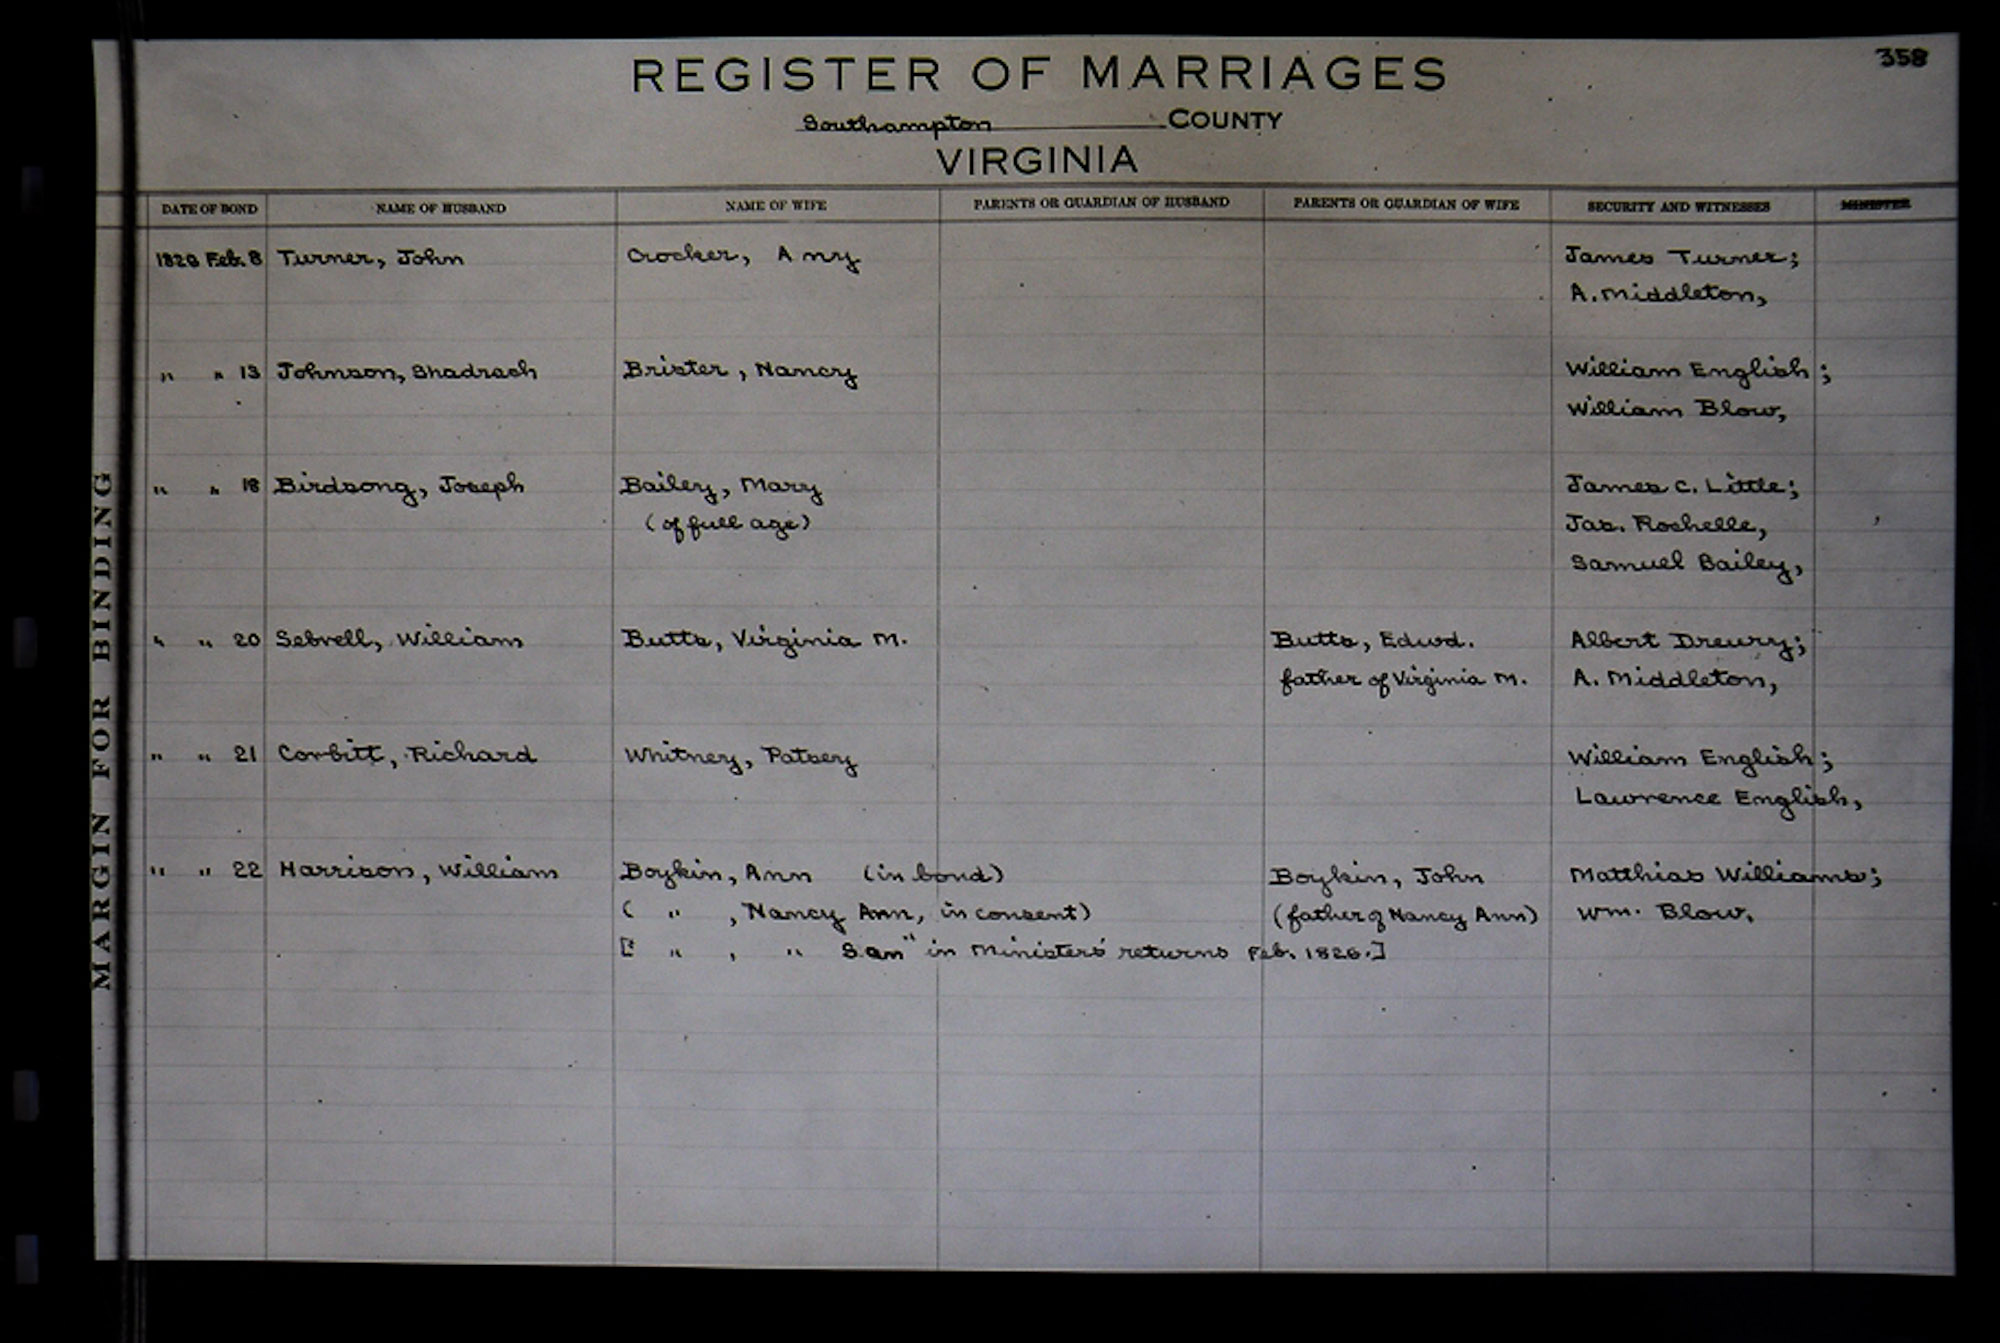 358
REGISTER OF MARRIAGES
Southampton COUNTY
VIRGINIA
DATE OF BOND NAME OF HUSBAND NAME OF WIFE PARENTS OR GUARDIAN OF HUSBAND PARENTS OR GUARDIAN OF WIFE SECURITY AND WITNESSES MINISTER
Feb. 8 Turner, John Crocker, Amy James Turner;
A. Middleton,
" " 13 Johnson, Shadrach Brister, Nancy William English;
William Blow,
" " 18 Birdsong, Joseph Bailey, Mary James C. Little;
(of full age) Jas. Rochelle,
Samuel Bailey,
" " 20 Sebrell, William Butts, Virginia M. Butts, Edwd. Albert Drewry;
father of Virginia M. A. Middleton,
" " 21 Corbitt, Richard Whitney, Patsey William English;
Lawrence English,
" " 22 Harrison, William Boykin, Ann (in bond) Boykin, John Matthias Williams;
( " , Nancy Ann, in consent) (father of Nancy Ann) Wm. Blow,
[ " , " San" in Ministers' returns Feb. 1826.]
MARGIN FOR BINDING